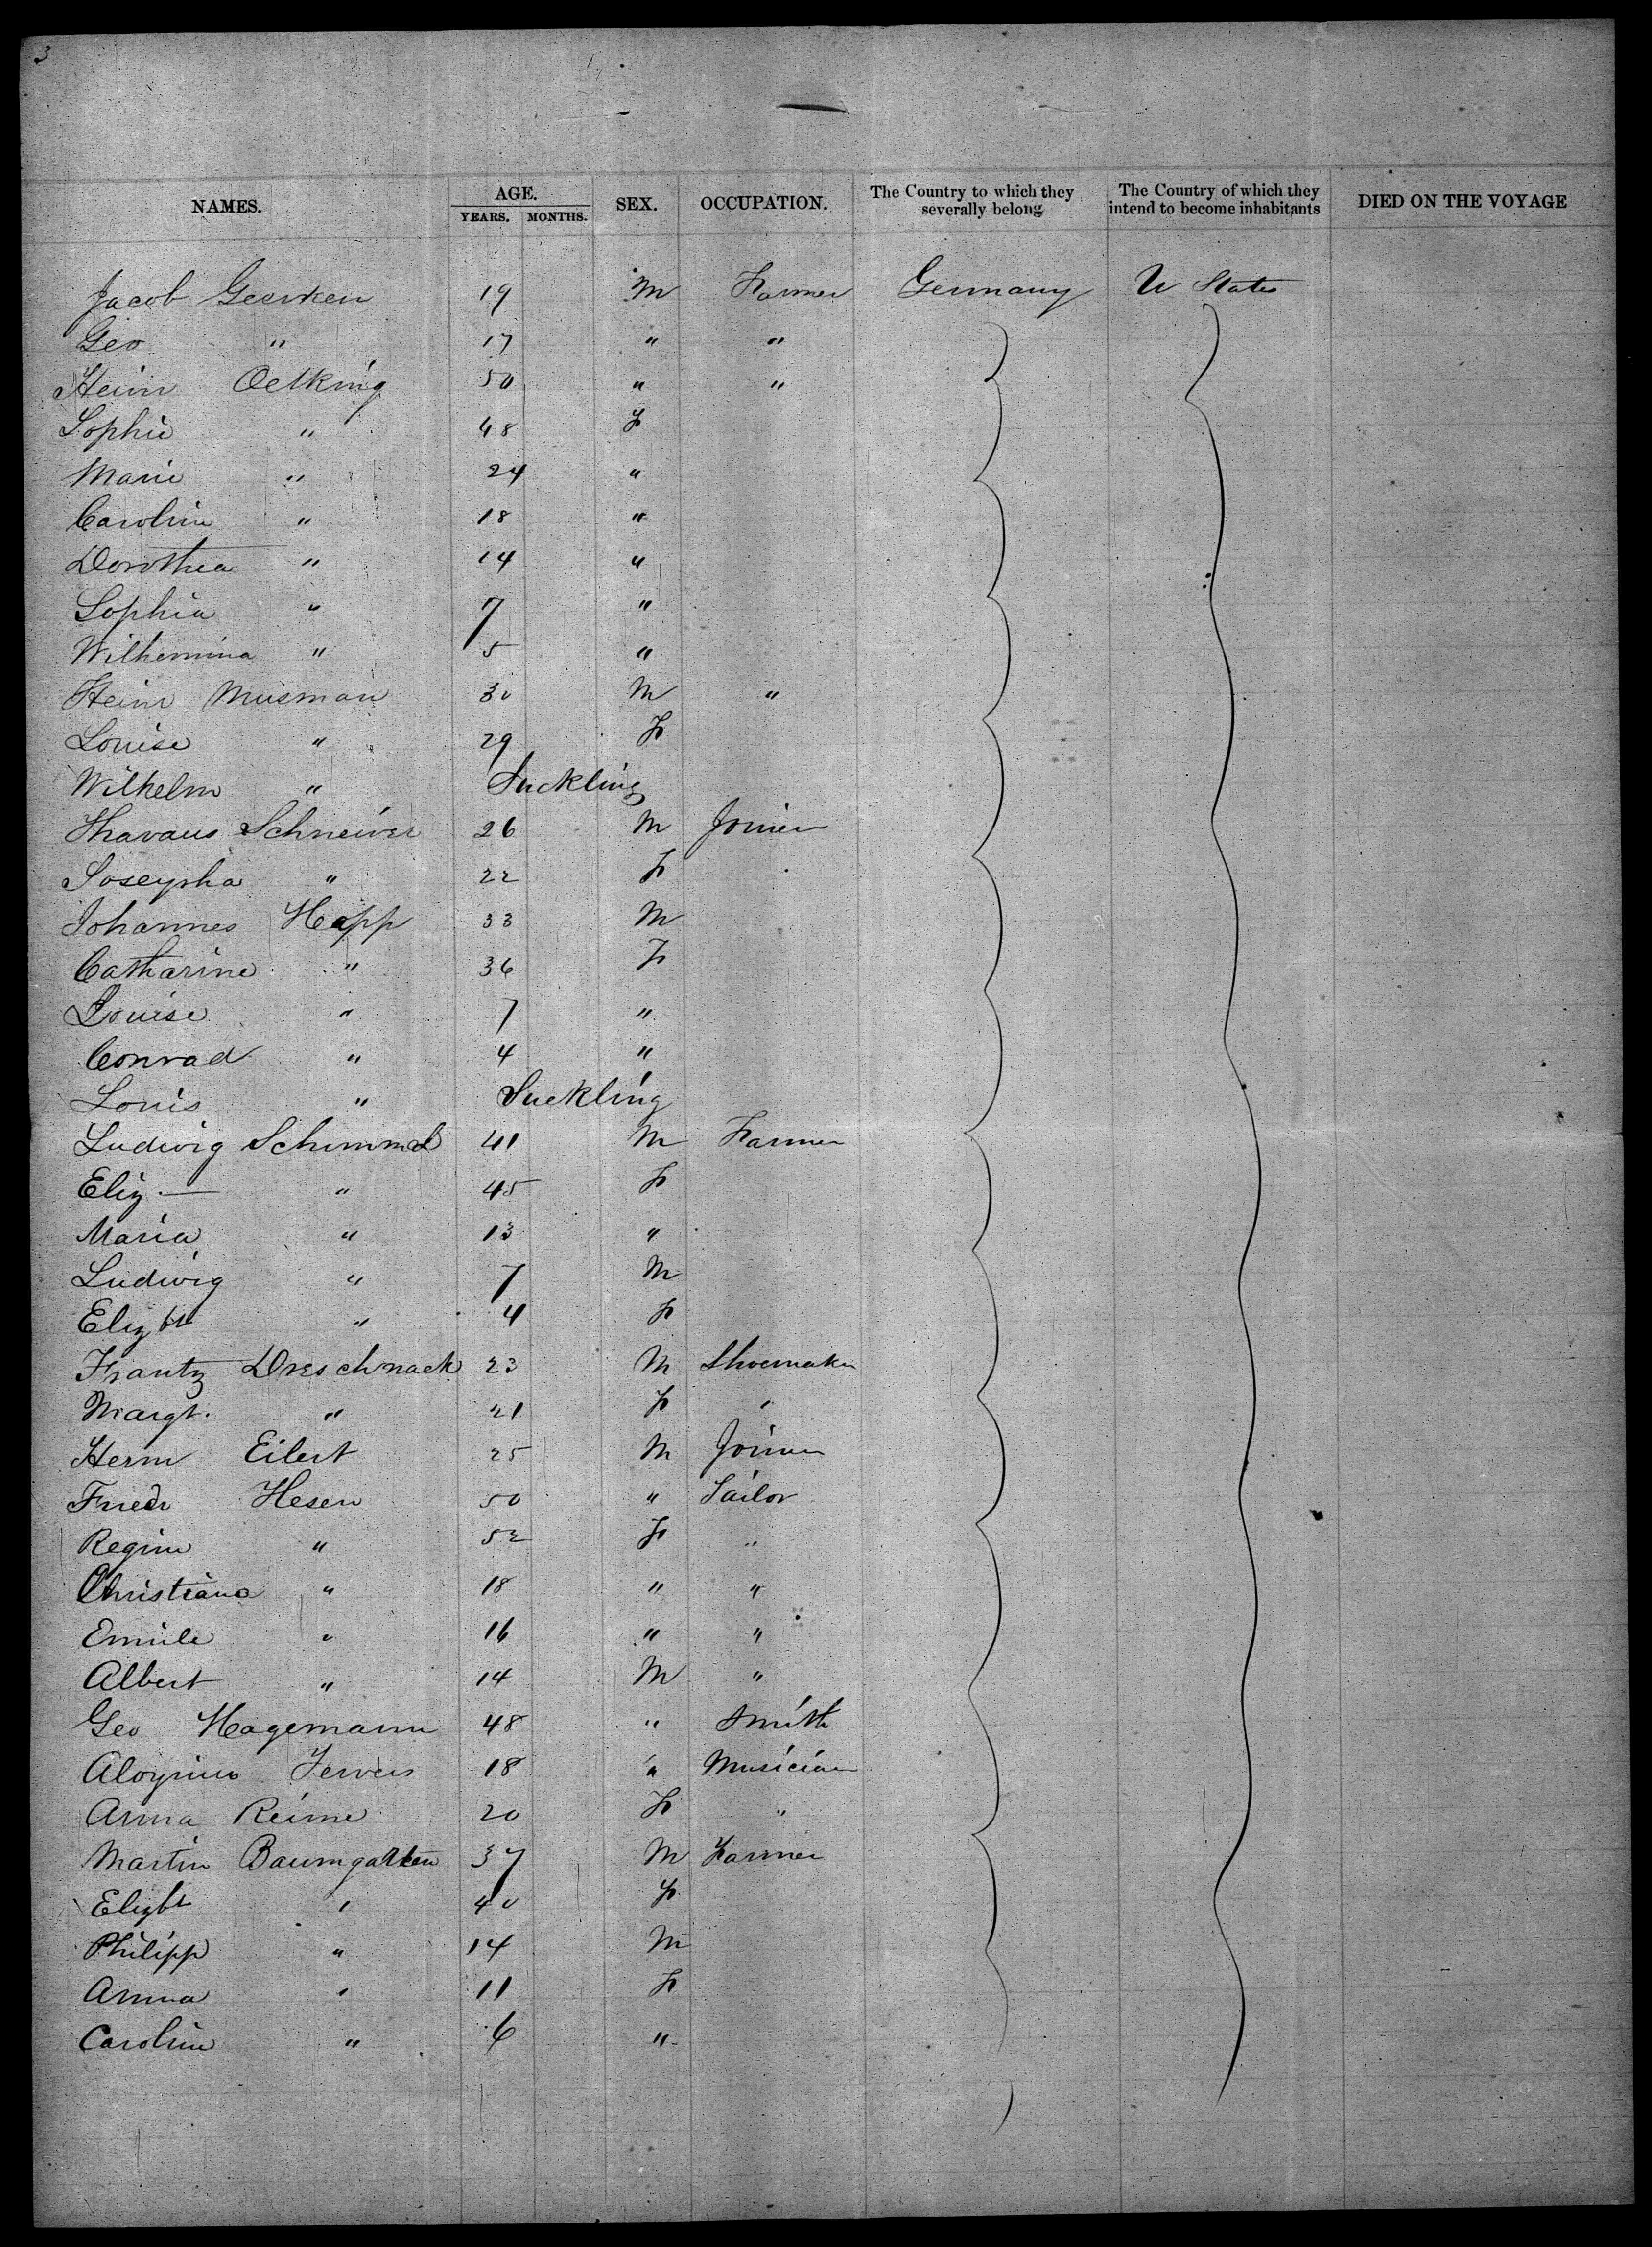 3
NAMES. AGE. YEARS. MONTHS. SEX. OCCUPATION. The Country to which they severally belong The Country of which they intend to become inhabitants DIED ON THE VOYAGE
Jacob Geerken 19 M Farmer Germany U States
Geo " 17 " "
Heinr Oelking 50 " "
Sophie " 48 F
Marie " 24 "
Carolin " 18 "
Dorothea " 14 "
Sophia " 7 "
Wilhemina " 5 "
Heinr Musman 30 M "
Louise " 29 F
Wilhelm " Suckling
Thavaus Schneiver 26 M Joiner
Joseypha " 22 F
Johannes Happ 33 M
Catharine " 36 F
Louise " 7 "
Conrad " 4 "
Louis " Suckling
Ludwig Schimmel 41 M Farmer
Eliz — " 45 F
Maria " 13 "
Ludwig " 7 M
Elizbt " 4 F
Frantz Dreschnack 23 M Shoemaker
Margt. " 21 F "
Herm Eilert 25 M Joiner
Friedr Hesen 50 " Tailor
Regine " 52 F "
Christiana " 18 " "
Emile " 16 " "
Albert " 14 M "
Geo Hagemann 48 " Smith
Aloysius 18 " Musician
Anna Reime 20 F "
Martin Baumgarten 37 M Farmer
Elizbt " 40 F
Philipp " 14 M
Anna " 11 F
Carolin " 6 "